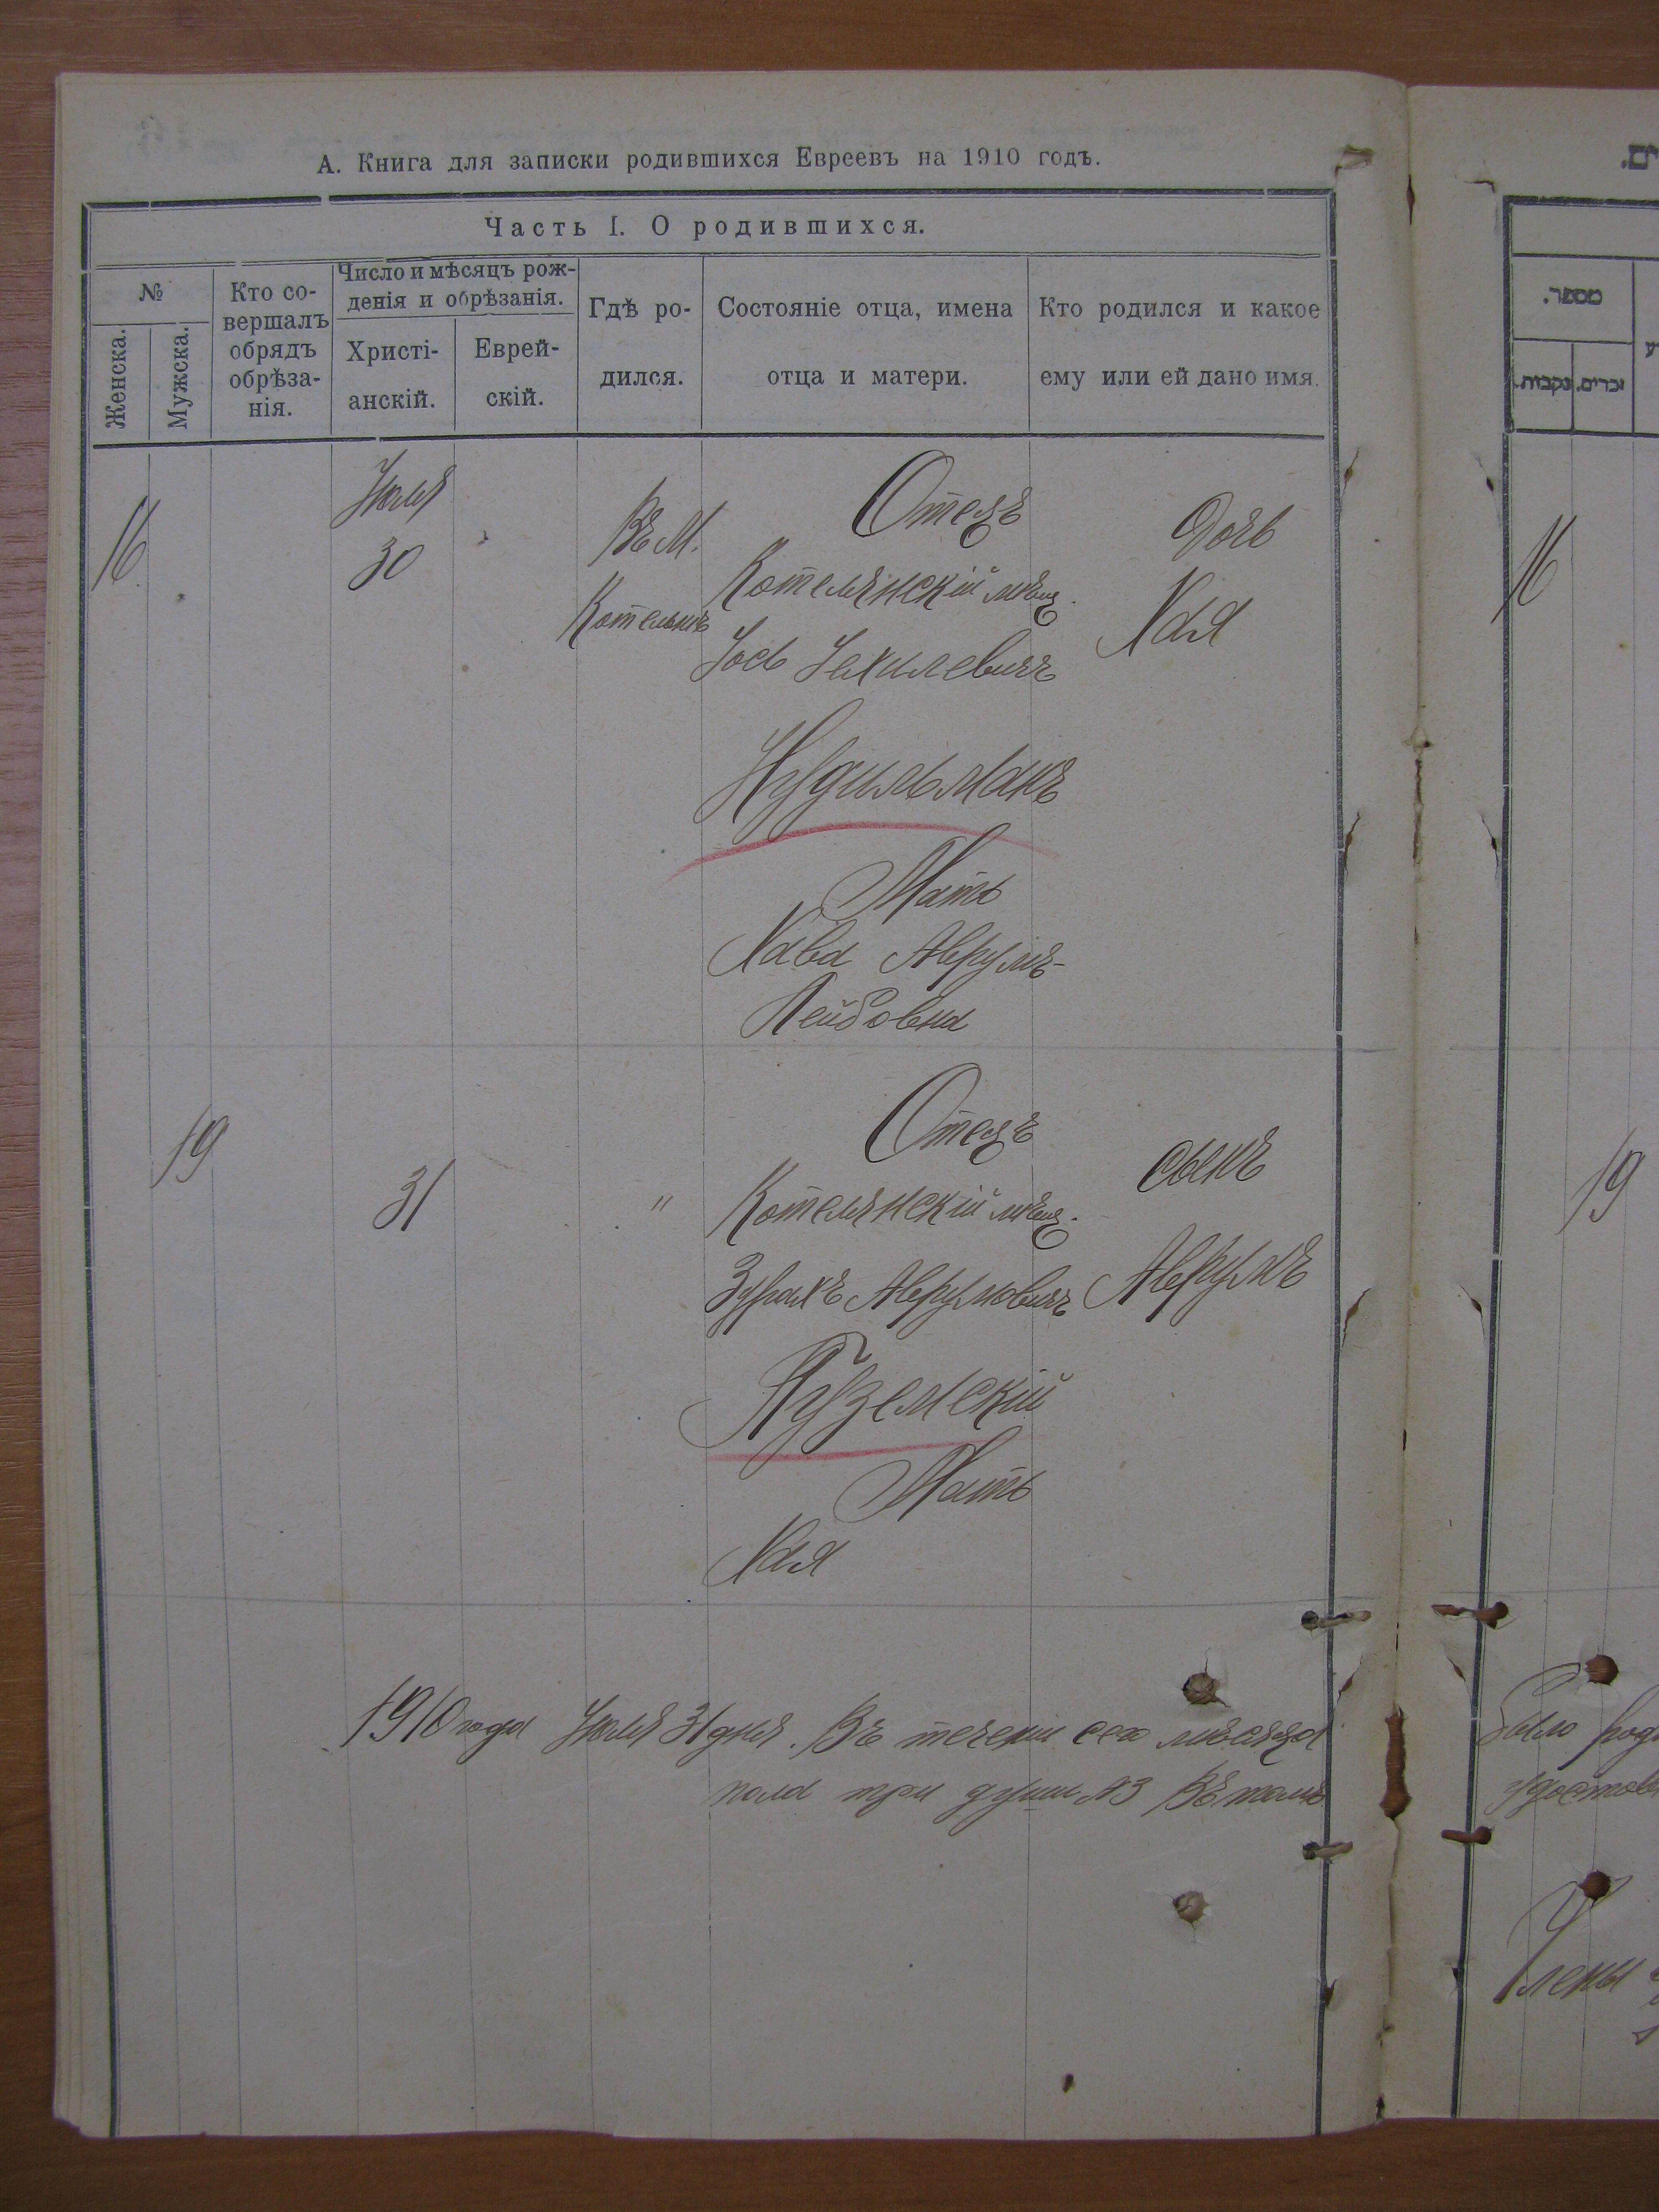 А. Книга для записки родившихся Евреевъ на 1910 годъ.
Часть I. О родившихся.
№
Женска.
Мужска.
Кто со-
вершалъ
обрядъ
обрѣза-
нія.
Число и мѣсяцъ рож-
денія и обрѣзанія.
Христі-
анскій.
Еврей-
скій.
Гдѣ ро-
дился.
Состояніе отца, имена
отца и матери.
Кто родился и какое
ему или ей дано имя.
16
Іюля
30
Въ М.
Котельнѣ
Отецъ
Котелянскій мѣщ.
Іось Іехилевичъ
Нудильманъ
Мать
Хава Аврумъ-
Лейбовна
Дочь
Хая
19
31
"
Отецъ
Котелянскій мѣщ.
Зурахъ Аврумовичъ
Пуземскій
Мать
Хая
сынъ
Аврумъ
1910 года Іюля 31 дня. Въ теченіи сего мѣсяца
пола три души №3 Въ томъ
מספר.
זכרים.
נקבות.
16
19
было
удостов
Члены